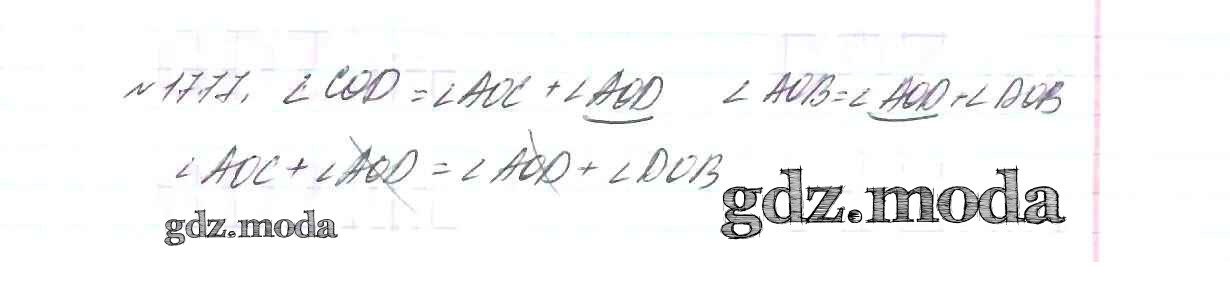 №1717. ∠COD = ∠AOC + ∠AOD ∠AOB = ∠AOD + ∠DOB
∠AOC + ∠AOD = ∠AOD + ∠DOB
gdz.moda
gdz.moda